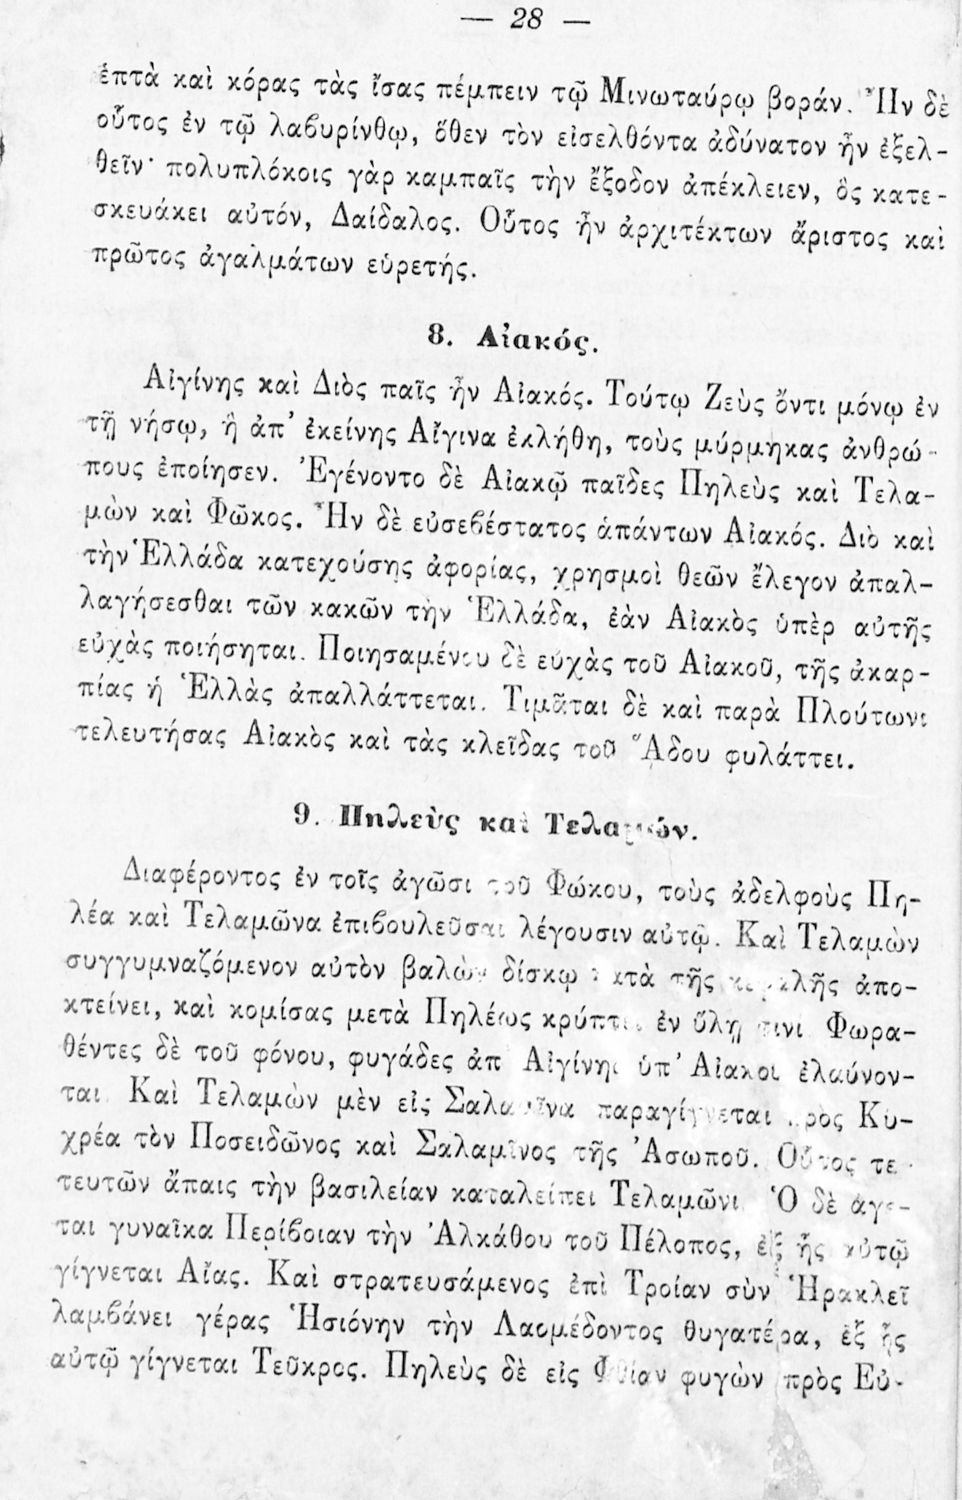 — 28 —
ἑπτὰ καὶ κόρας τὰς ἴσας πέμπειν τῷ Μινωταύρῳ βοράν. Ἦν δὲ
οὗτος ἐν τῷ λαϐυρίνθῳ, ὅθεν τὸν εἰσελθόντα ἀδύνατον ἦν ἐξελ-
θεῖν· πολυπλόκοις γὰρ καμπαῖς τὴν ἔξοδον ἀπέκλειεν, ὃς κατε-
σκευάκει αὐτόν, Δαίδαλος. Οὗτος ἦν ἀρχιτέκτων ἄριστος καὶ
πρῶτος ἀγαλμάτων εὑρετής.
8. Αἰακός.
Αἰγίνης καὶ Διὸς παῖς ἦν Αἰακός. Τούτῳ Ζεὺς ὄντι μόνῳ ἐν
τῇ νήσῳ, ἣ ἀπ' ἐκείνης Αἴγινα ἐκλήθη, τοὺς μύρμηκας ἀνθρώ-
πους ἐποίησεν. Ἐγένοντο δὲ Αἰακῷ παῖδες Πηλεὺς καὶ Τελα-
μὼν καὶ Φῶκος. Ἦν δὲ εὐσεϐέστατος ἁπάντων Αἰακός. Διὸ καὶ
τὴν Ἑλλάδα κατεχούσης ἀφορίας, χρησμοὶ θεῶν ἔλεγον ἀπαλ-
λαγήσεσθαι τῶν κακῶν τὴν Ἑλλάδα, ἐὰν Αἰακὸς ὑπὲρ αὐτῆς
εὐχὰς ποιήσηται. Ποιησαμένου δὲ εὐχὰς τοῦ Αἰακοῦ, τῆς ἀκαρ-
πίας ἡ Ἑλλὰς ἀπαλλάττεται. Τιμᾶται δὲ καὶ παρὰ Πλούτωνι
τελευτήσας Αἰακὸς καὶ τὰς κλεῖδας τοῦ Ἅδου φυλάττει.
9. Πηλεὺς καὶ Τελαμών.
Διαφέροντος ἐν τοῖς ἀγῶσι τοῦ Φώκου, τοὺς ἀδελφοὺς Πη-
λέα καὶ Τελαμῶνα ἐπιϐουλεῦσαι λέγουσιν αὐτῷ. Καὶ Τελαμὼν
συγγυμναζόμενον αὐτὸν βαλὼν δίσκῳ κατὰ τῆς κεφαλῆς ἀπο-
κτείνει, καὶ κομίσας μετὰ Πηλέως κρύπτει ἐν ὕλῃ τινί. Φωρα-
θέντες δὲ τοῦ φόνου, φυγάδες ἀπ' Αἰγίνης ὑπ' Αἰακοῦ ἐλαύνον-
ται. Καὶ Τελαμὼν μὲν εἰς Σαλαμῖνα παραγίγνεται πρὸς Κυ-
χρέα τὸν Ποσειδῶνος καὶ Σαλαμῖνος τῆς Ἀσωποῦ. Οὗτος τε-
τευτῶν ἄπαις τὴν βασιλείαν καταλείπει Τελαμῶνι. Ὁ δὲ ἄγε-
ται γυναῖκα Περίϐοιαν τὴν Ἀλκάθου τοῦ Πέλοπος, ἐξ ἧς αὐτῷ
γίγνεται Αἴας. Καὶ στρατευσάμενος ἐπὶ Τροίαν σὺν Ἡρακλεῖ
λαμϐάνει γέρας Ἡσιόνην τὴν Λαομέδοντος θυγατέρα, ἐξ ἧς
αὐτῷ γίγνεται Τεῦκρος. Πηλεὺς δὲ εἰς Φθίαν φυγὼν πρὸς Εὐ-